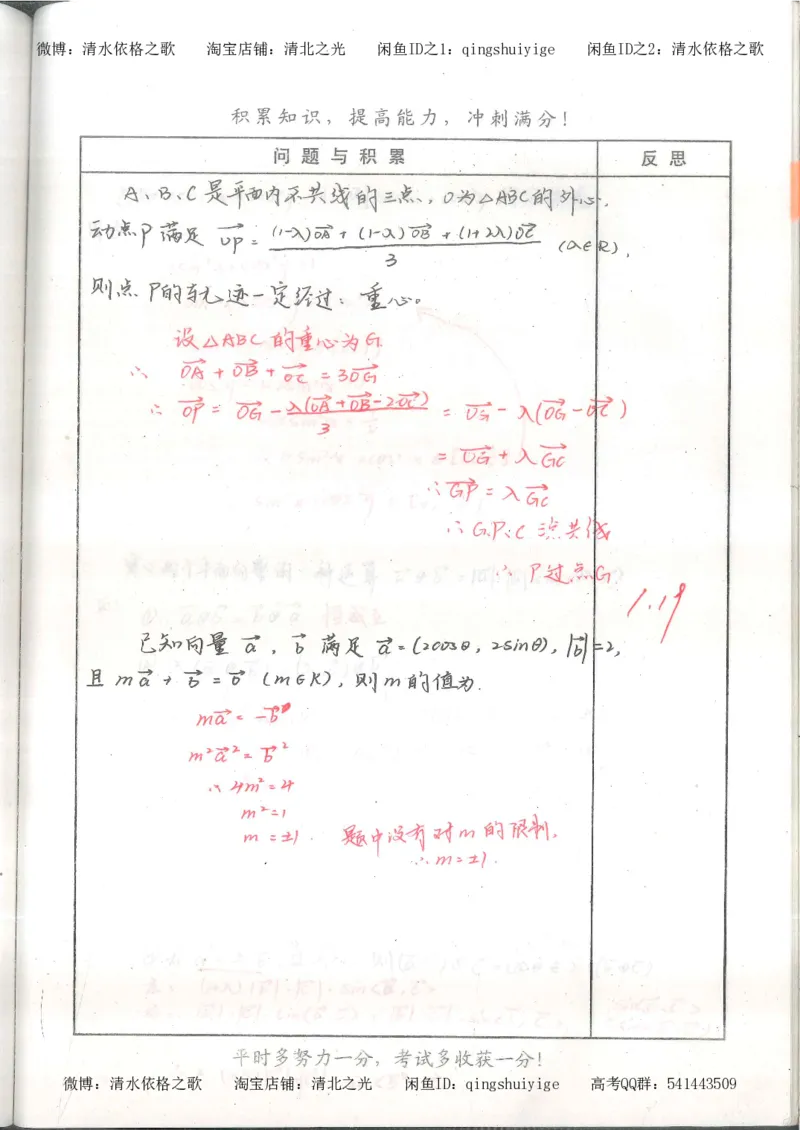 微博：清水依格之歌 淘宝店铺：清北之光 闲鱼ID之1：qingshuiyige 闲鱼ID之2：清水依格之歌
积累知识，提高能力，冲刺满分！
问题与积累 反思
A、B、C是平面内不共线的三点，O为△ABC的外心，
动点P满足 \vec{OP} = \frac{(1-λ)\vec{OA} + (1-λ)\vec{OB} + (1+2λ)\vec{OC}}{3} (λ∈R)，
则点P的轨迹一定经过：重心。
设△ABC的重心为G
∴ \vec{OA} + \vec{OB} + \vec{OC} = 3\vec{OG}
∴ \vec{OP} = \vec{OG} - \frac{λ(\vec{OA}+\vec{OB}-2\vec{OC})}{3} = \vec{OG} - λ(\vec{OG}-\vec{OC})
= \vec{OG} + λ\vec{GC}
∴ \vec{GP} = λ\vec{GC}
∴ G.P.C 三点共线
∴ P过点G
1.19
已知向量 \vec{a}，\vec{b} 满足 \vec{a}=(2cosθ, 2sinθ)，|\vec{b}|=2，
且 m\vec{a} + \vec{b} = \vec{0} (m∈R)，则m的值为.
m\vec{a} = -\vec{b}
m²\vec{a}² = \vec{b}²
∴ 4m² = 4
m² = 1
m = ±1. 题中没有对m的限制，
∴ m = ±1.
平时多努力一分，考试多收获一分！
微博：清水依格之歌 淘宝店铺：清北之光 闲鱼ID：qingshuiyige 高考QQ群：541443509